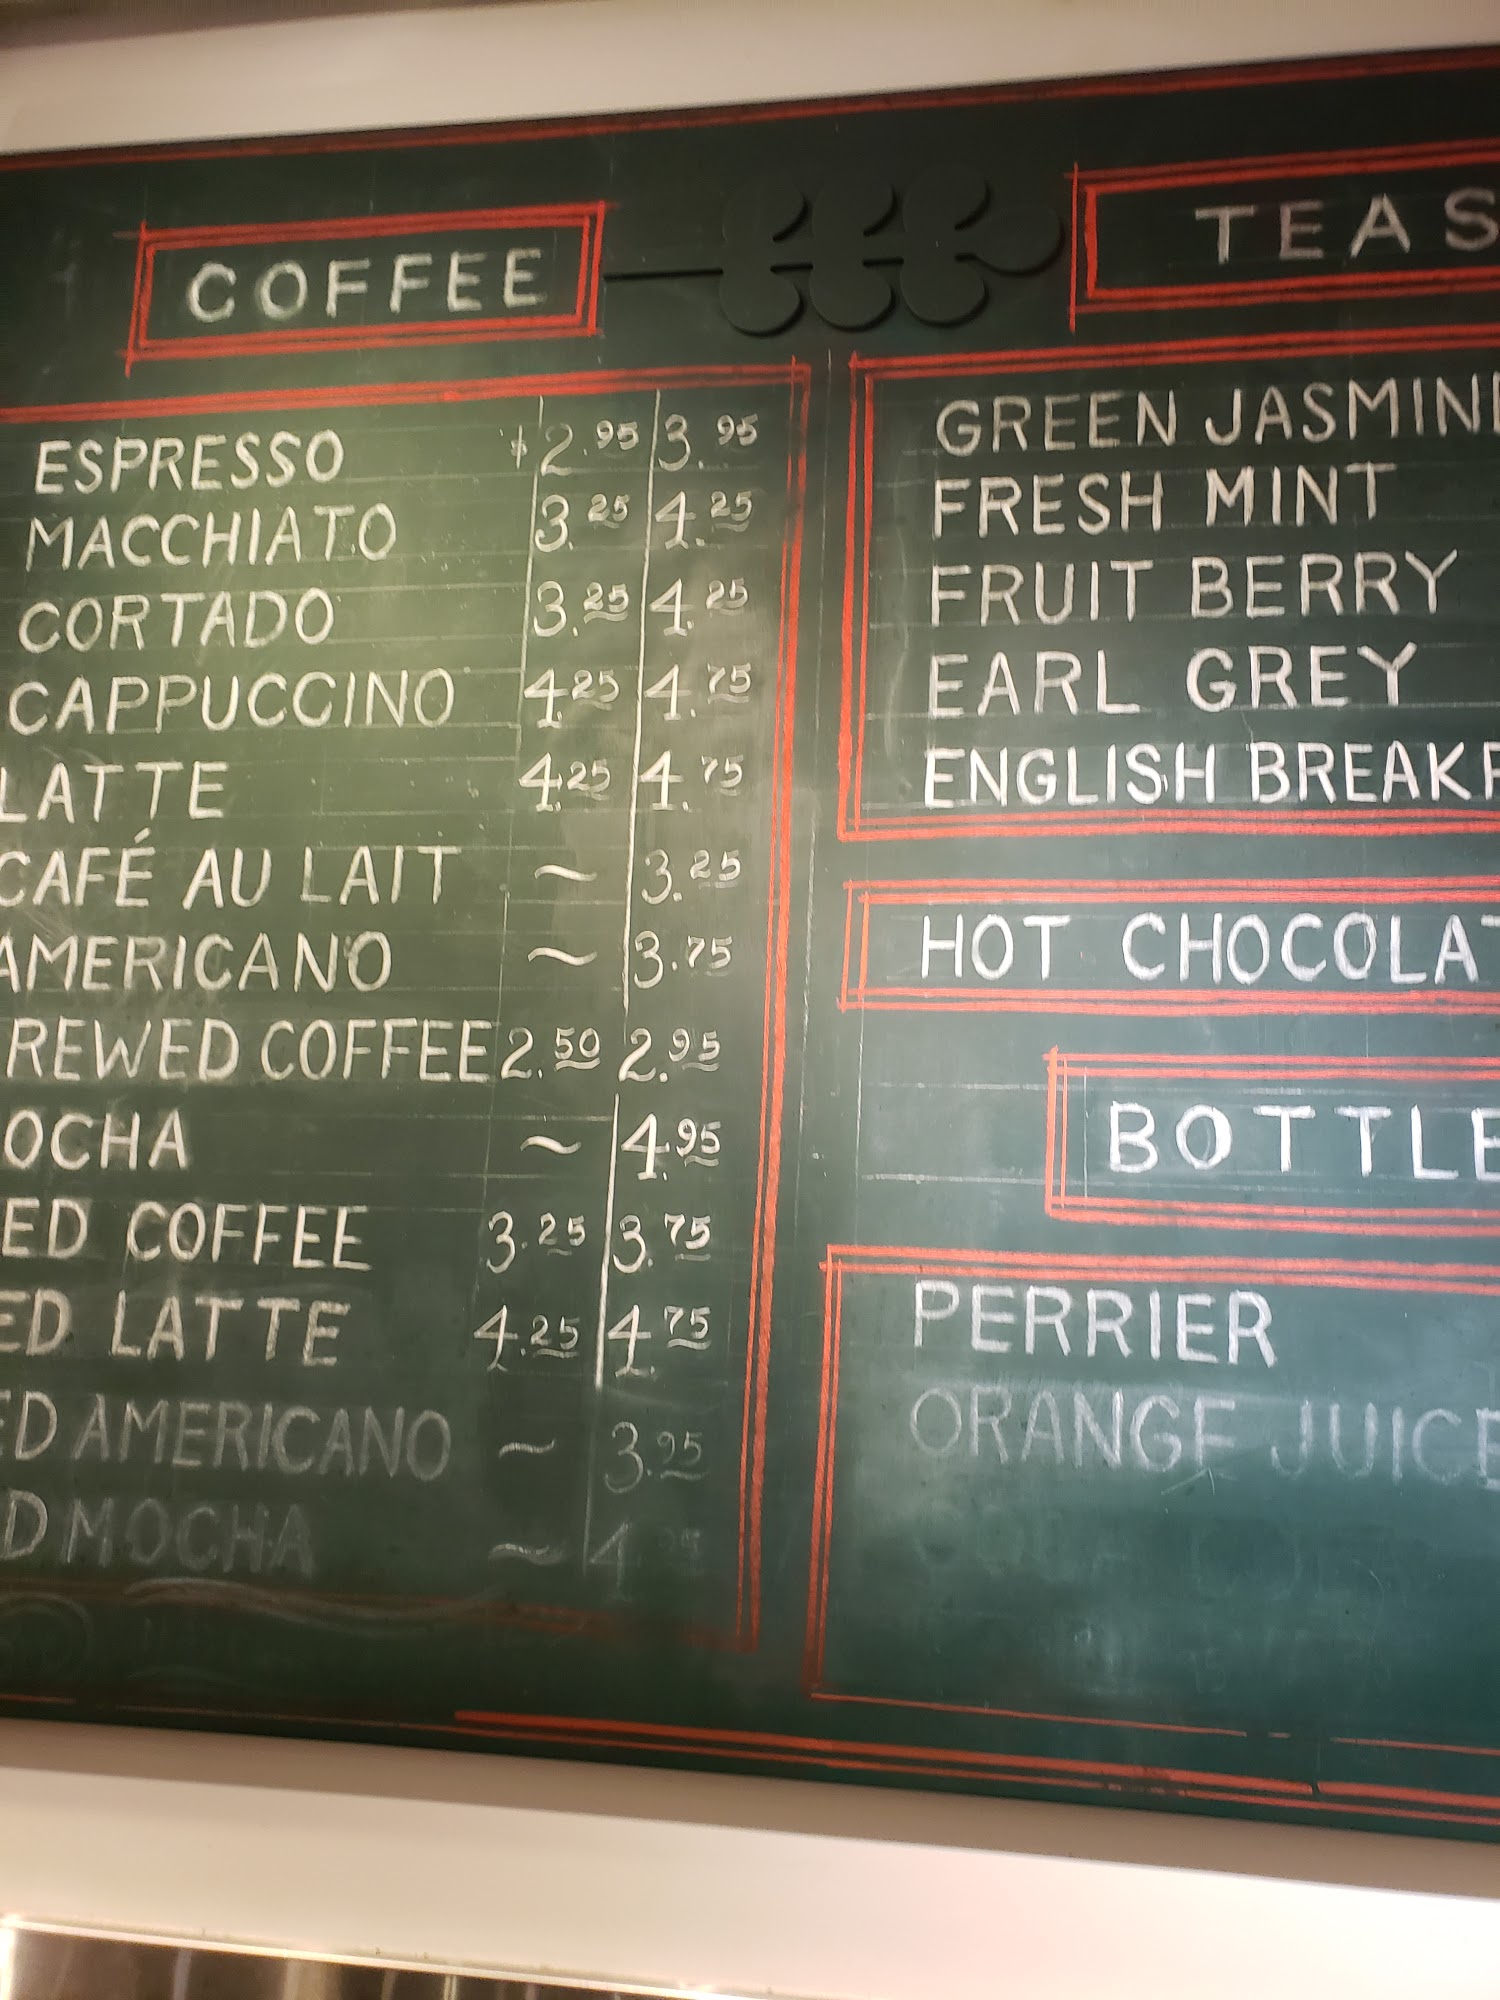 COFFEE
ESPRESSO $2.95 3.95
MACCHIATO 3.25 4.25
CORTADO 3.25 4.25
CAPPUCCINO 4.25 4.75
LATTE 4.25 4.75
CAFÉ AU LAIT ~ 3.25
AMERICANO ~ 3.75
REWED COFFEE 2.50 2.95
OCHA ~ 4.95
ED COFFEE 3.25 3.75
ED LATTE 4.25 4.75
ED AMERICANO ~ 3.95
D MOCHA ~ 4.
TEAS
GREEN JASMINE
FRESH MINT
FRUIT BERRY
EARL GREY
ENGLISH BREAKF
HOT CHOCOLAT
BOTTLE
PERRIER
ORANGE JUICE